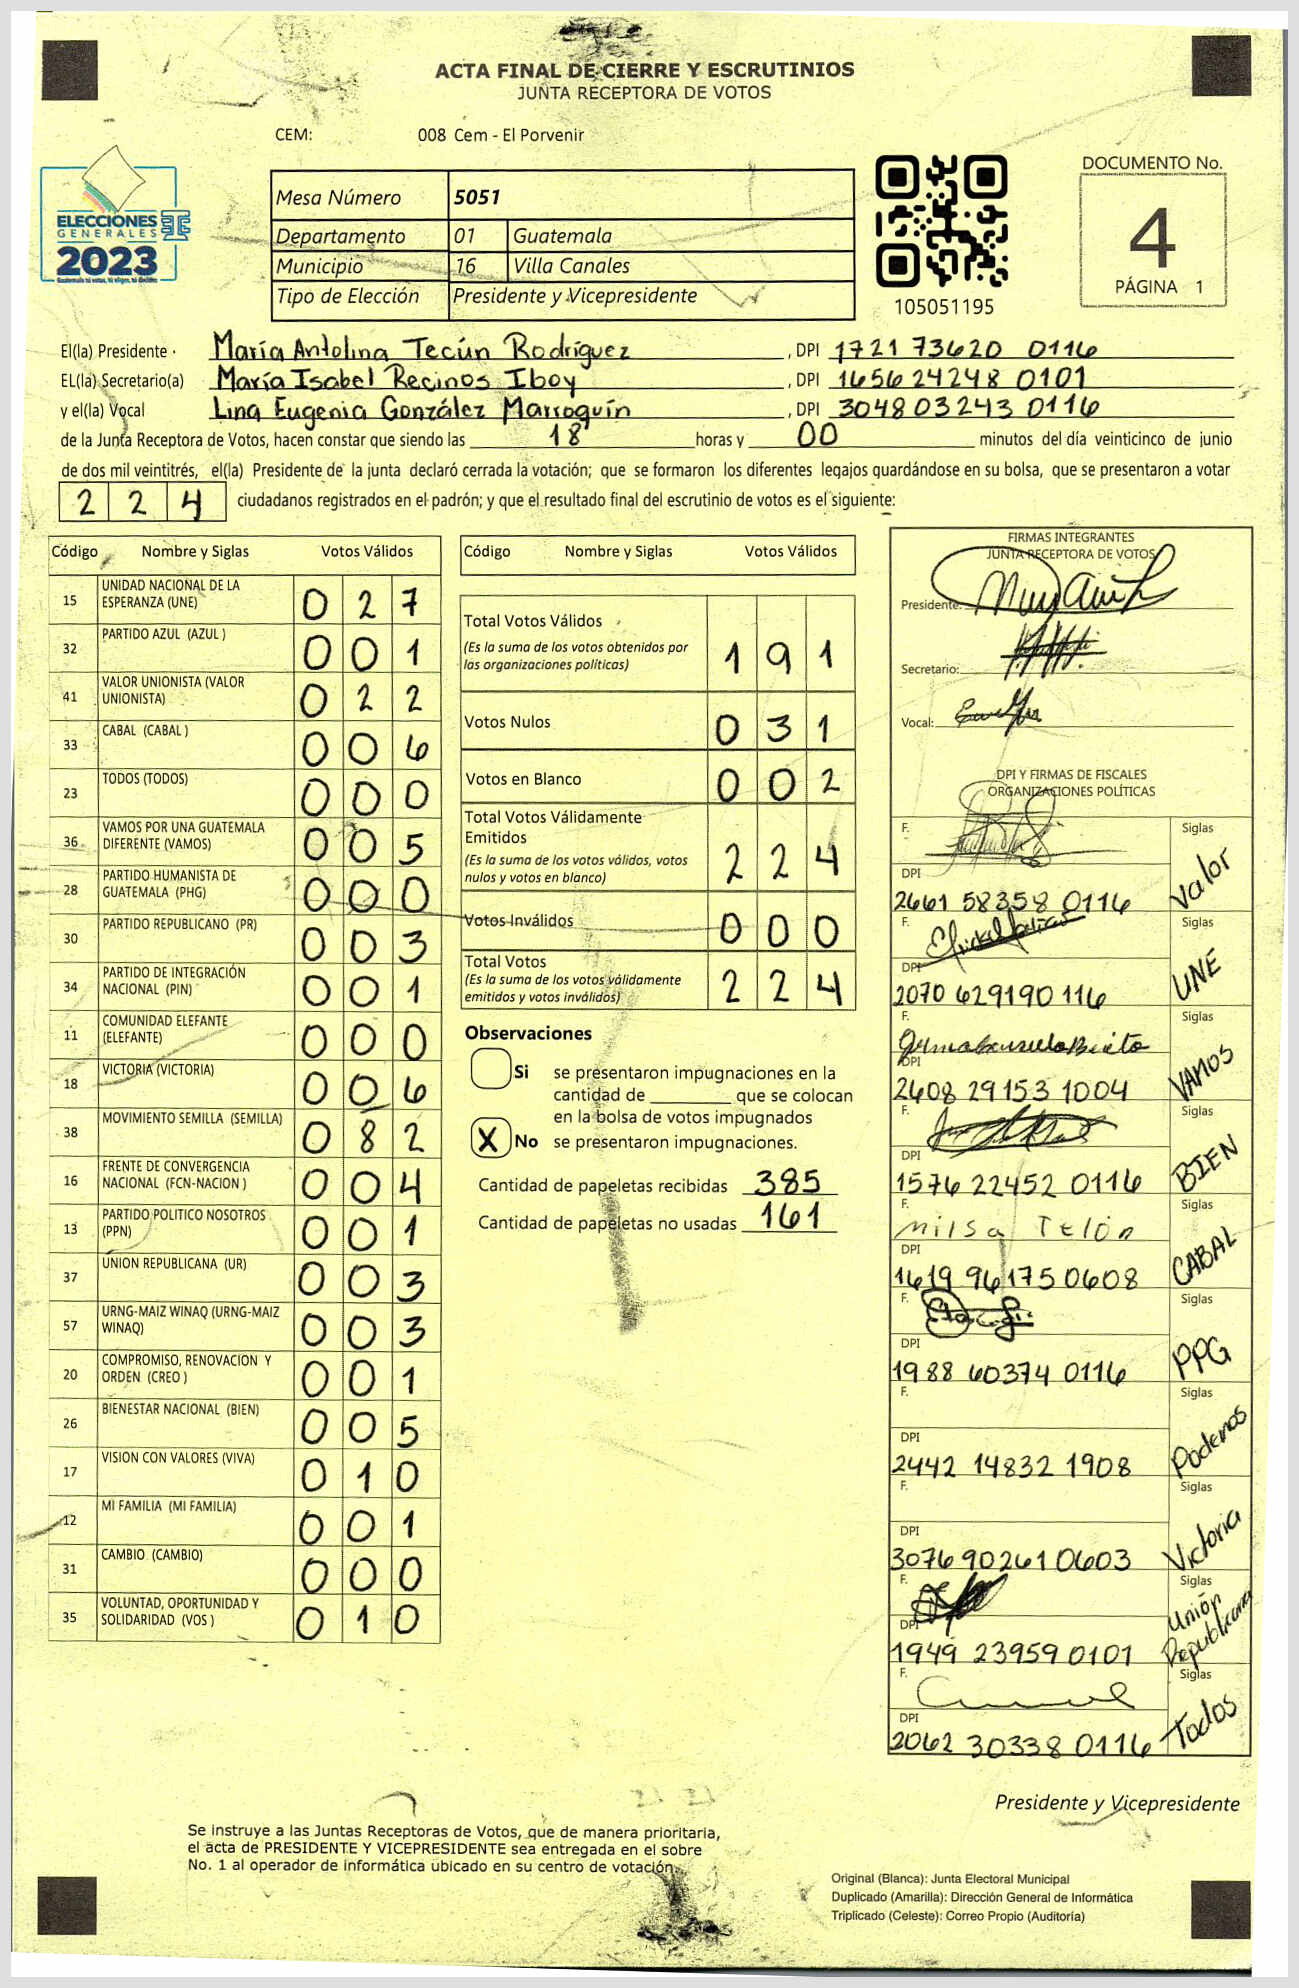 ACTA FINAL DE CIERRE Y ESCRUTINIOS
JUNTA RECEPTORA DE VOTOS
CEM: 008 Cem - El Porvenir
ELECCIONES
GENERALES
2023
Mesa Número 5051
Departamento 01 Guatemala
Municipio 16 Villa Canales
Tipo de Elección Presidente y Vicepresidente
105051195
DOCUMENTO No.
4
PÁGINA 1
El(la) Presidente María Antolina Tecún Rodríguez, DPI 1721 73620 0116
EL(la) Secretario(a) María Isabel Recinos Iboy, DPI 1656 24248 0101
y el(la) Vocal Lina Eugenia González Marroquín, DPI 3048 03243 0116
de la Junta Receptora de Votos, hacen constar que siendo las 18 horas y 00 minutos del día veinticinco de junio
de dos mil veintitrés, el(la) Presidente de la junta declaró cerrada la votación; que se formaron los diferentes legajos guardándose en su bolsa, que se presentaron a votar
224 ciudadanos registrados en el padrón; y que el resultado final del escrutinio de votos es el siguiente:
Código Nombre y Siglas Votos Válidos
15 UNIDAD NACIONAL DE LA ESPERANZA (UNE) 027
32 PARTIDO AZUL (AZUL ) 001
41 VALOR UNIONISTA (VALOR UNIONISTA) 022
33 CABAL (CABAL ) 006
23 TODOS (TODOS) 000
36 VAMOS POR UNA GUATEMALA DIFERENTE (VAMOS) 005
28 PARTIDO HUMANISTA DE GUATEMALA (PHG) 000
30 PARTIDO REPUBLICANO (PR) 003
34 PARTIDO DE INTEGRACIÓN NACIONAL (PIN) 001
11 COMUNIDAD ELEFANTE (ELEFANTE) 000
18 VICTORIA (VICTORIA) 006
38 MOVIMIENTO SEMILLA (SEMILLA) 082
16 FRENTE DE CONVERGENCIA NACIONAL (FCN-NACION ) 004
13 PARTIDO POLITICO NOSOTROS (PPN) 001
37 UNION REPUBLICANA (UR) 003
57 URNG-MAIZ WINAQ (URNG-MAIZ WINAQ) 003
20 COMPROMISO, RENOVACION Y ORDEN (CREO ) 001
26 BIENESTAR NACIONAL (BIEN) 005
17 VISION CON VALORES (VIVA) 010
12 MI FAMILIA (MI FAMILIA) 001
31 CAMBIO (CAMBIO) 000
35 VOLUNTAD, OPORTUNIDAD Y SOLIDARIDAD (VOS ) 010
Código Nombre y Siglas Votos Válidos
Total Votos Válidos
(Es la suma de los votos obtenidos por
las organizaciones políticas) 191
Votos Nulos 031
Votos en Blanco 002
Total Votos Válidamente
Emitidos
(Es la suma de los votos válidos, votos
nulos y votos en blanco) 224
Votos Inválidos 000
Total Votos
(Es la suma de los votos válidamente
emitidos y votos inválidos) 224
Observaciones
Si se presentaron impugnaciones en la
cantidad de ________ que se colocan
en la bolsa de votos impugnados
X No se presentaron impugnaciones.
Cantidad de papeletas recibidas 385
Cantidad de papeletas no usadas 161
FIRMAS INTEGRANTES
JUNTA RECEPTORA DE VOTOS
Presidente:
Secretario:
Vocal:
DPI Y FIRMAS DE FISCALES
ORGANIZACIONES POLÍTICAS
F. Siglas
DPI
2661 58358 0116 Valor
F. Siglas
DPI
2070 62919 0116 UNE
F. Siglas
DPI
2608 29153 1004 VAMOS
F. Siglas
DPI
1576 22452 0116 BIEN
F. Milsa Telón Siglas
DPI
1619 96175 0608 CABAL
F. Siglas
DPI
1988 60374 0116 PPG
F. Siglas
DPI
2442 14832 1908 Podemos
F. Siglas
DPI
3076 90261 0603 Victoria
F. Siglas
DPI
1949 23959 0101 Unión Republicana
F. Siglas
DPI
2062 30338 0116 Todos
Presidente y Vicepresidente
Se instruye a las Juntas Receptoras de Votos, que de manera prioritaria,
el acta de PRESIDENTE Y VICEPRESIDENTE sea entregada en el sobre
No. 1 al operador de informática ubicado en su centro de votación.
Original (Blanca): Junta Electoral Municipal
Duplicado (Amarilla): Dirección General de Informática
Triplicado (Celeste): Correo Propio (Auditoría)